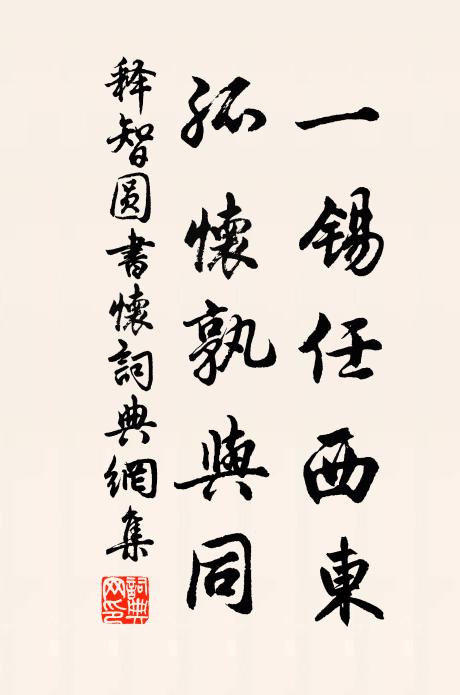 一锡任西東
孤懷孰與同
释智圆書懷詞典網集
詞典网印